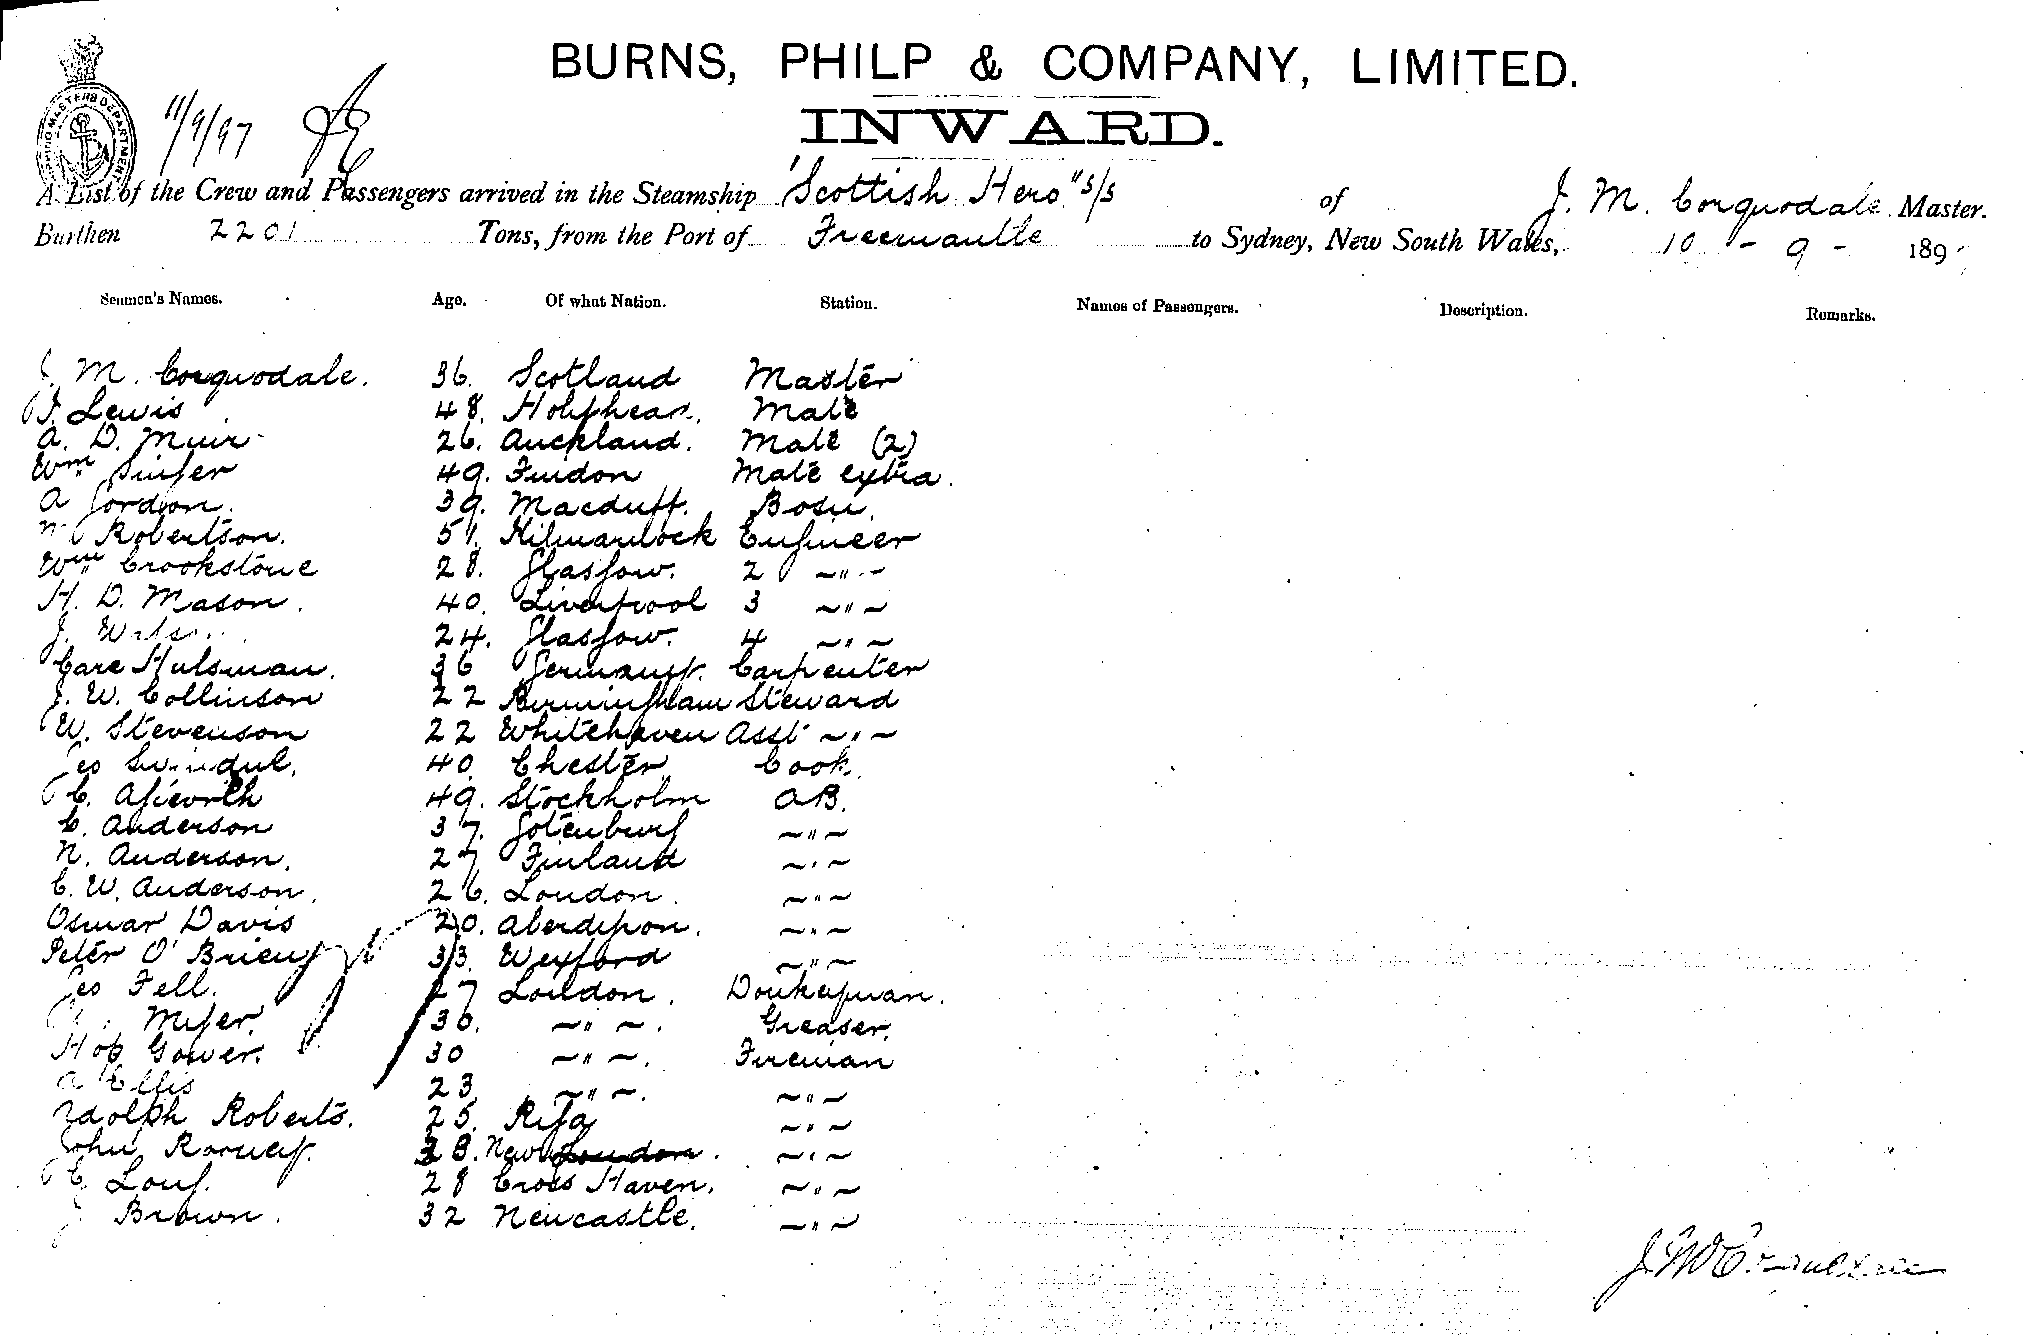 BURNS, PHILP & COMPANY, LIMITED.
INWARD.
SHIPPING MASTERS DEPARTMENT
11/9/97
A List of the Crew and Passengers arrived in the Steamship "Scottish Hero" s/s of J. M. Corquodale Master.
Burthen 2201 Tons, from the Port of Freemantle to Sydney, New South Wales, 10 - 9 - 189
Seamen's Names. Age. Of what Nation. Station. Names of Passengers. Description. Remarks.
J. M. Corquodale. 36. Scotland Master
J. Lewis 48. Mate
A. D. Muir 26. Auckland. Mate (2)
Wm Singer 49. Findon Mate extra.
A Gordon. 39. Macduff. Bosn.
Robertson. 51. Kilmarnock Engineer
Wm Crookstone 28. Glasgow. 2 ~"~
H. D. Mason. 40. Liverpool 3 ~"~
J. 24. Glasgow. 4 ~"~
Hulsman. 36 Germany. Carpenter
J. W. Collinson 22 Birmingham Steward
W. Stevenson 22 Whitehaven Asst ~"~
Geo 40. Chester Cook.
C. 49. Stockholm AB.
C. Anderson 37. Gotenburg ~"~
N. Anderson. 27 Finland ~"~
C. W. Anderson. 26. London. ~"~
Osmar Davis 20. ~"~
Peter O'Brien 33. Wexford ~"~
Geo Fell. 27 London. Donkeyman.
30. ~"~. Greaser.
Gower. 30 ~"~. Fireman
A Ellis 23 ~"~. ~"~
Adolph Roberts. 25. Riga ~"~
John Rooney. 28. New London. ~"~
E Long. 28 Cross Haven. ~"~
J Brown. 32 Newcastle. ~"~